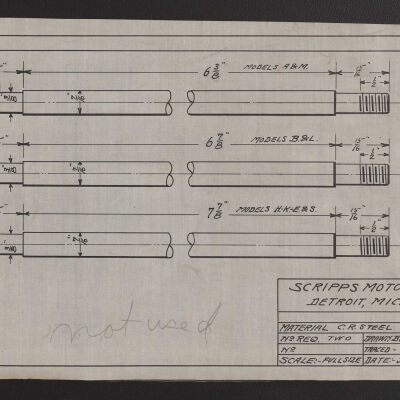 6 3/8" MODELS A & M.
1/2"
3/8"
7/16"
6 7/8" MODELS B. & L. 15/16"
1/2"
3/8"
7/16"
7 7/8" MODELS H-K-E & S. 15/16"
1/2"
3/8"
7/16"
SCRIPPS MOTO
DETROIT, MIC
not used
MATERIAL C. R. STEEL
NO REQ. TWO DRAWN-B
NO TRACED-
SCALE:- FULL SIZE DATE:-